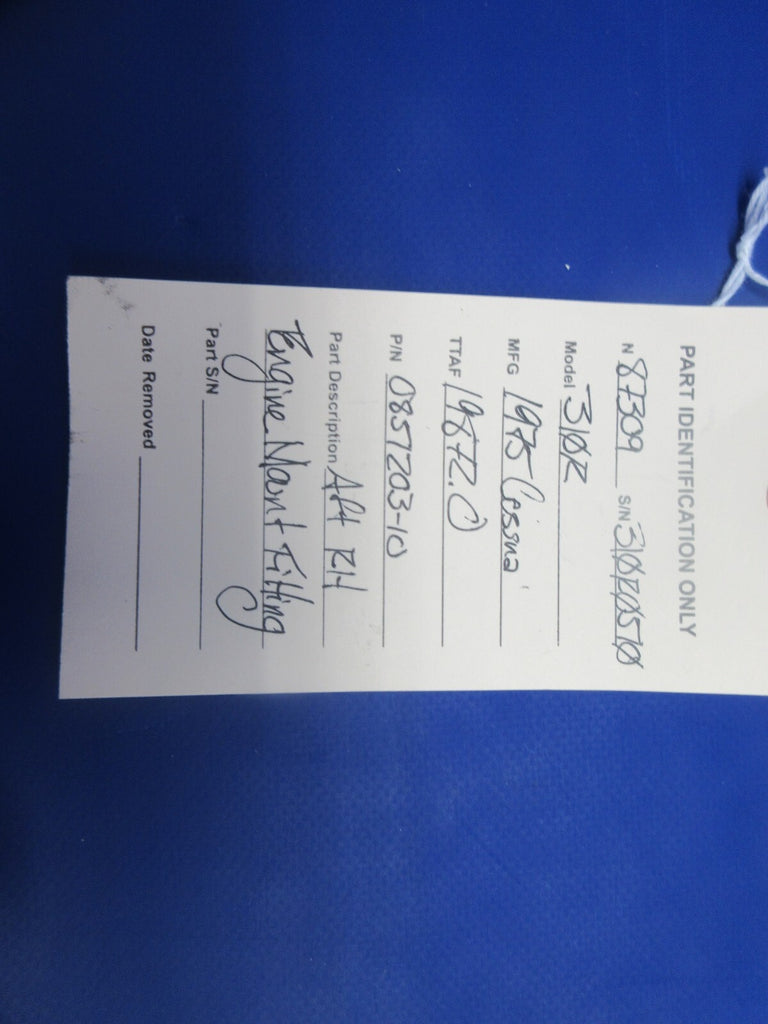 PART IDENTIFICATION ONLY
N 87309 S/N 310R0510
Model 310R
MFG 1975 Cessna
TTAF 1987.0
P/N 0851203-10
Part Description Aft RH
Engine Mount Fitting
Part S/N
Date Removed